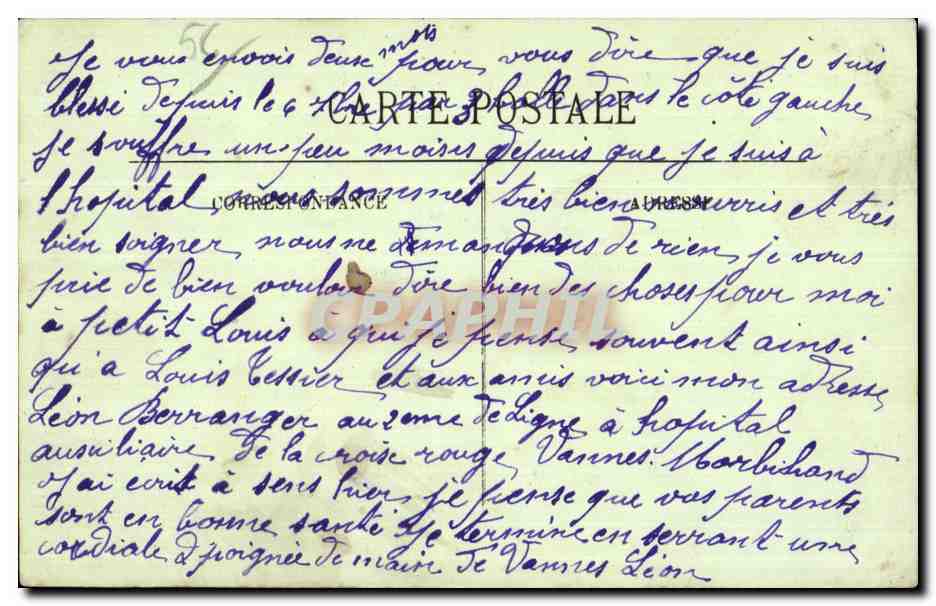 56
Je vous envois deux mots pour vous dire que je suis
blessé depuis le 6 7bre par 3 balle dans le côté gauche
CARTE POSTALE
je souffre un peu moises depuis que je suis à
l'hopital, nous sommes très bien nourris et très
CORRESPONDANCE ADRESSE
bien soigner nous ne demandons de rien, je vous
prie de bien vouloir dire bien des choses pour moi
CPAPHIL
à petit Louis à qui je pense souvent ainsi
qu'a Louis Tessier et aux amis voici mon adresse
Léon Berranger au 2eme de Ligne à hopital
auxiliaire de la croix rouge Vannes. Morbihand
J'ai écrit à sens hier, je pense que vos parents
sont en bonne santé Je termine en serrant une
cordiale poignée de main de Vannes Léon